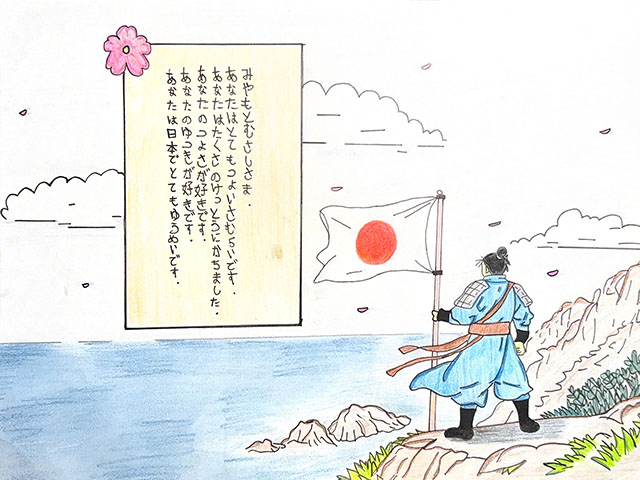 みやもとむさしさま．
あなたはとてもつよいさむらいです．
あなたはたくさのけっとうにかちました．
あなたのつよさが好きです．
あなたのゆうきが好きです．
あなたは日本でとてもゆうめいです．